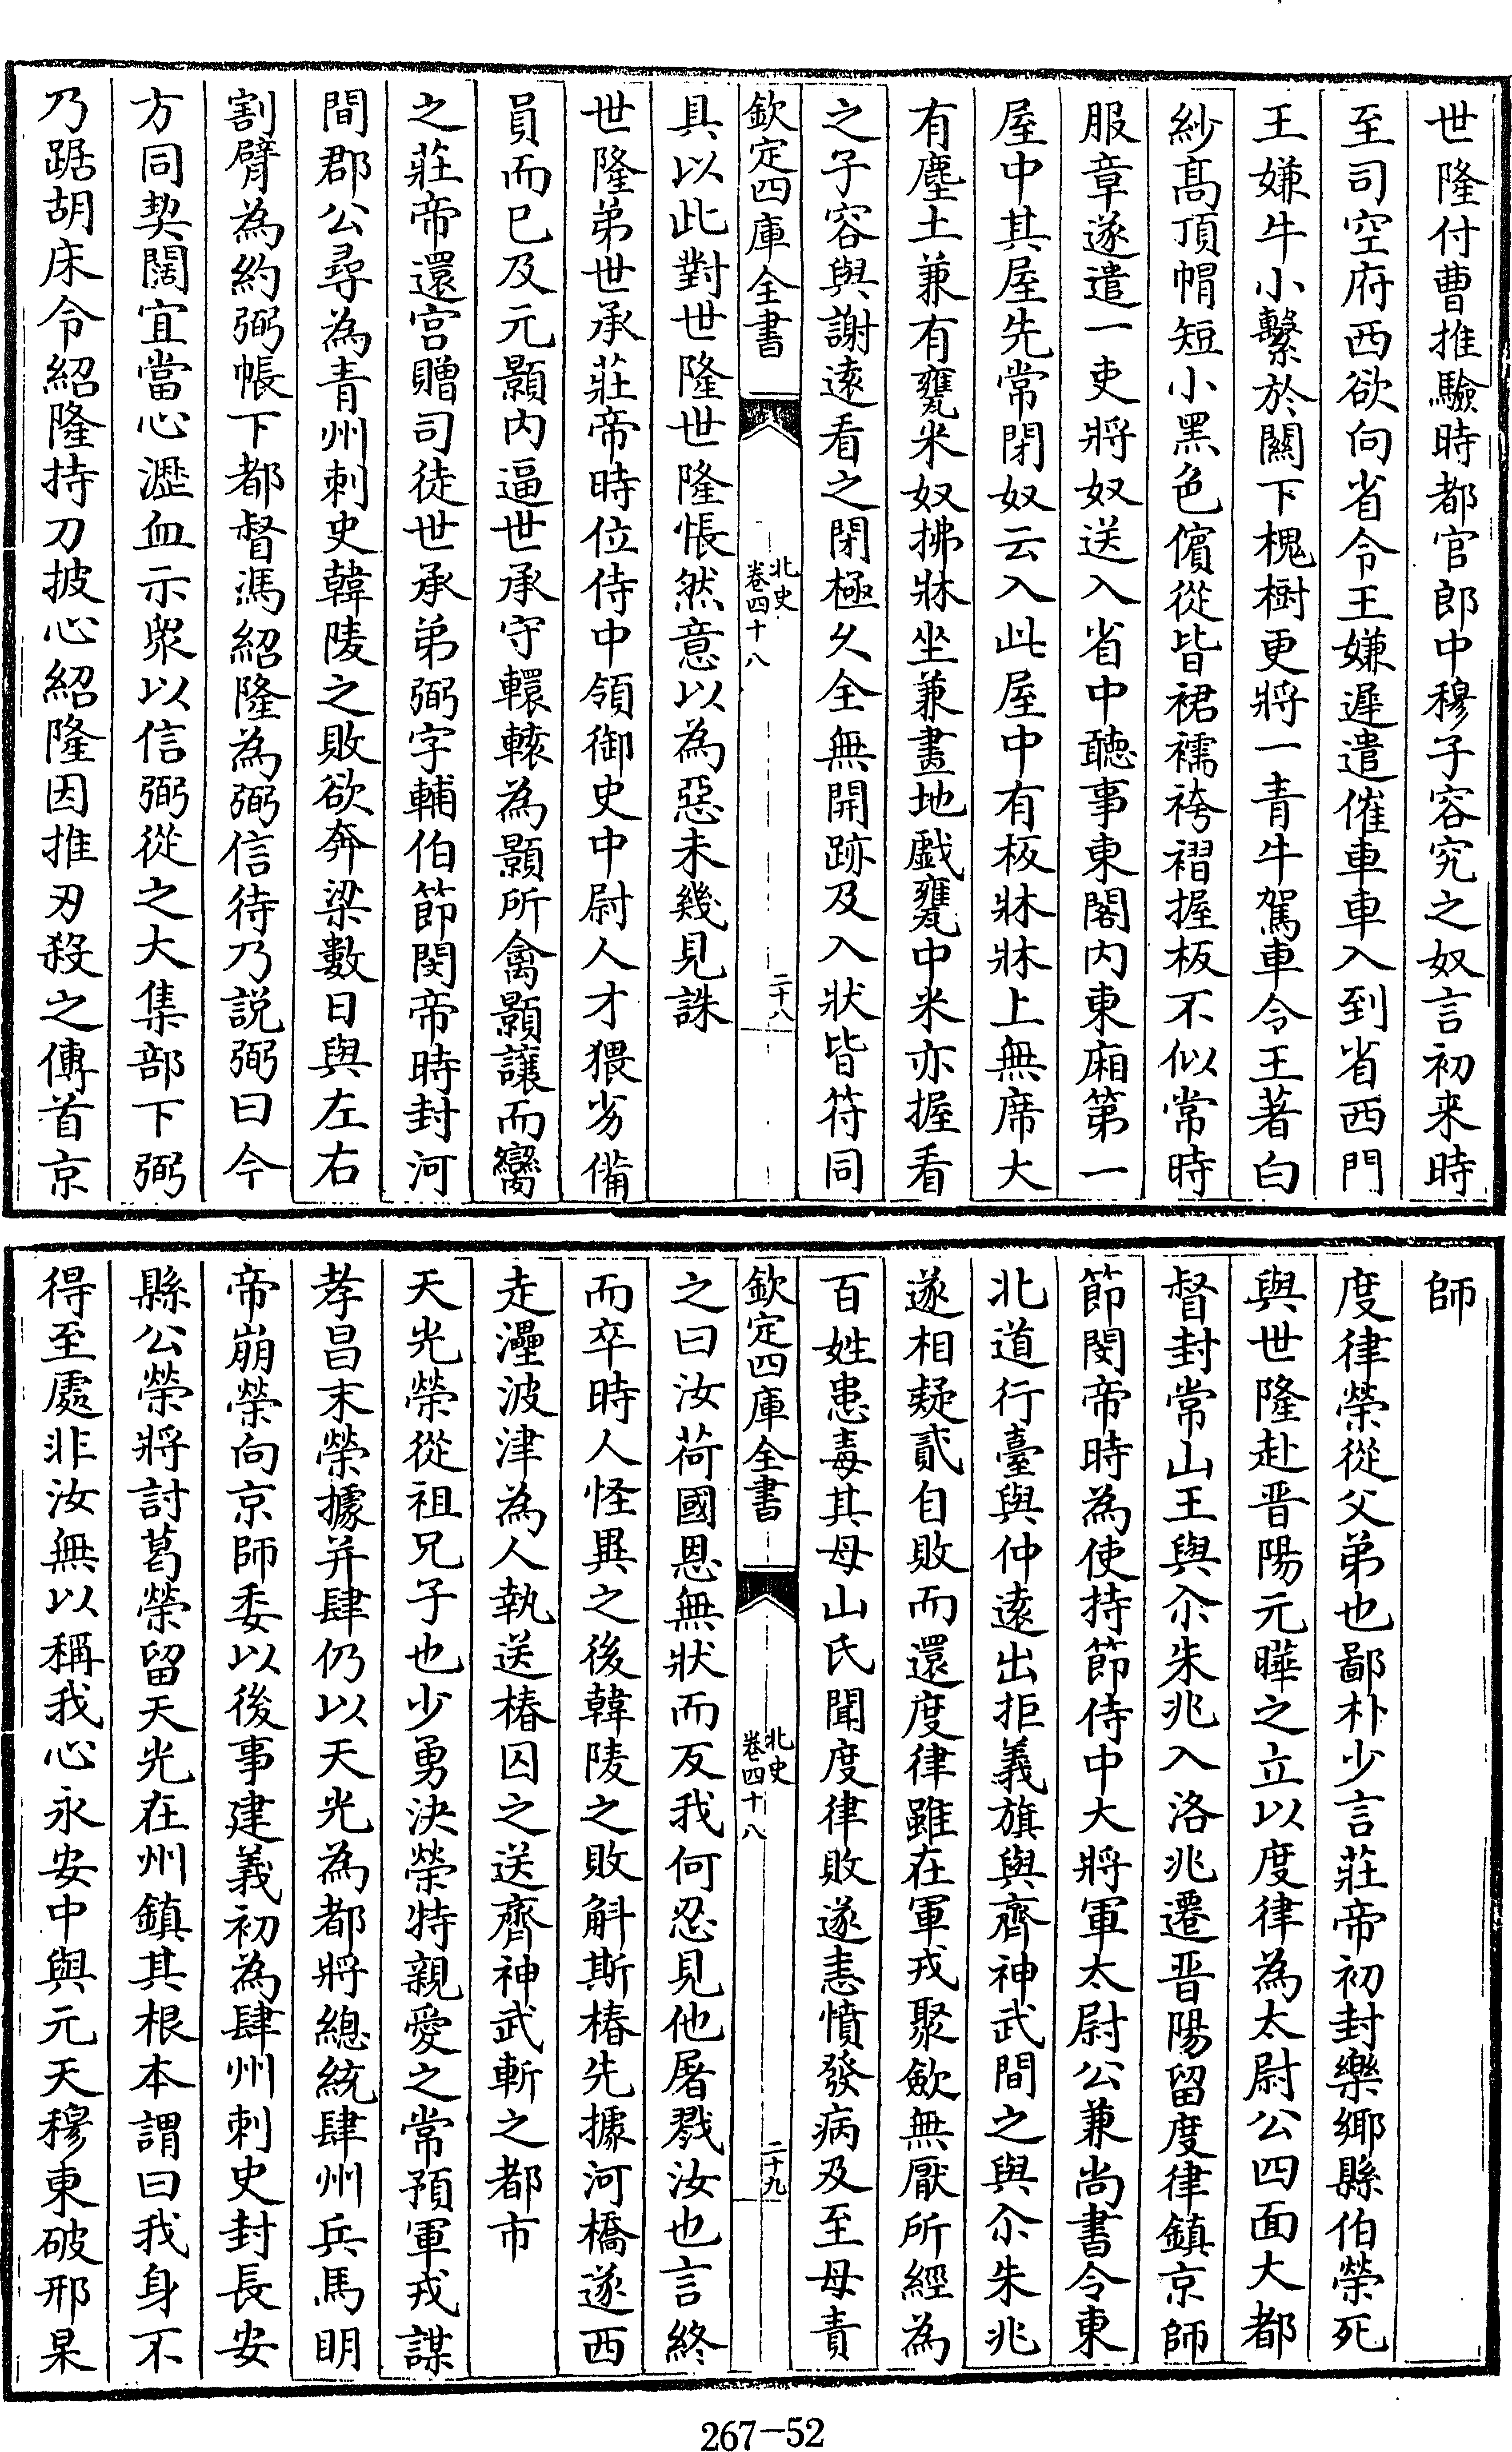 世隆付曹推驗時都官郎中穆子容究之奴言初来時
至司空府西欲向省令王嫌遲遣催車車入到省西門
王嫌牛小繫於闗下槐樹更將一青牛駕車令王著白
紗髙頂帽短小黑色儐從皆裙襦袴褶握板不似常時
服章遂遣一吏將奴送入省中聴事東閣内東廂第一
屋中其屋先常閉奴云入此屋中有板牀牀上無席大
有塵土兼有甕米奴拂牀坐兼畫地戲甕中米亦握看
之子容與謝逺看之閉極乆全無開跡及入狀皆符同
欽定四庫全書
北史
卷四十八
二十八
具以此對世隆世隆悵然意以為惡未幾見誅
世隆弟世承莊帝時位侍中領御史中尉人才猥劣備
員而已及元顥内逼世承守轘轅為顥所禽顥讓而臠
之莊帝還宫贈司徒世承弟弼字輔伯節閔帝時封河
間郡公尋為青州刺史韓陵之敗欲奔梁數日與左右
割臂為約弼帳下都督馮紹隆為弼信待乃説弼曰今
方同契闊宜當心瀝血示衆以信弼從之大集部下弼
乃踞胡床令紹隆持刀披心紹隆因推刃殺之傳首京
師
度律榮從父弟也鄙朴少言莊帝初封樂鄉縣伯榮死
與世隆赴晋陽元曄之立以度律為太尉公四面大都
督封常山王與尒朱兆入洛兆遷晋陽留度律鎮京師
節閔帝時為使持節侍中大將軍太尉公兼尚書令東
北道行臺與仲逺出拒義旗與齊神武間之與尒朱兆
遂相疑貳自敗而還度律雖在軍戎聚歛無厭所經為
百姓患毒其母山氏聞度律敗遂恚憤發病及至母責
欽定四庫全書
北史
卷四十八
二十九
之曰汝荷國恩無狀而反我何忍見他屠戮汝也言終
而卒時人怪異之後韓陵之敗斛斯椿先據河橋遂西
走灅波津為人執送椿囚之送齊神武斬之都市
天光榮從祖兄子也少勇決榮特親愛之常預軍戎謀
孝昌末榮據并肆仍以天光為都將總統肆州兵馬明
帝崩榮向京師委以後事建義初為肆州刺史封長安
縣公榮將討葛榮留天光在州鎮其根本謂曰我身不
得至處非汝無以稱我心永安中與元天穆東破邢杲
267-52